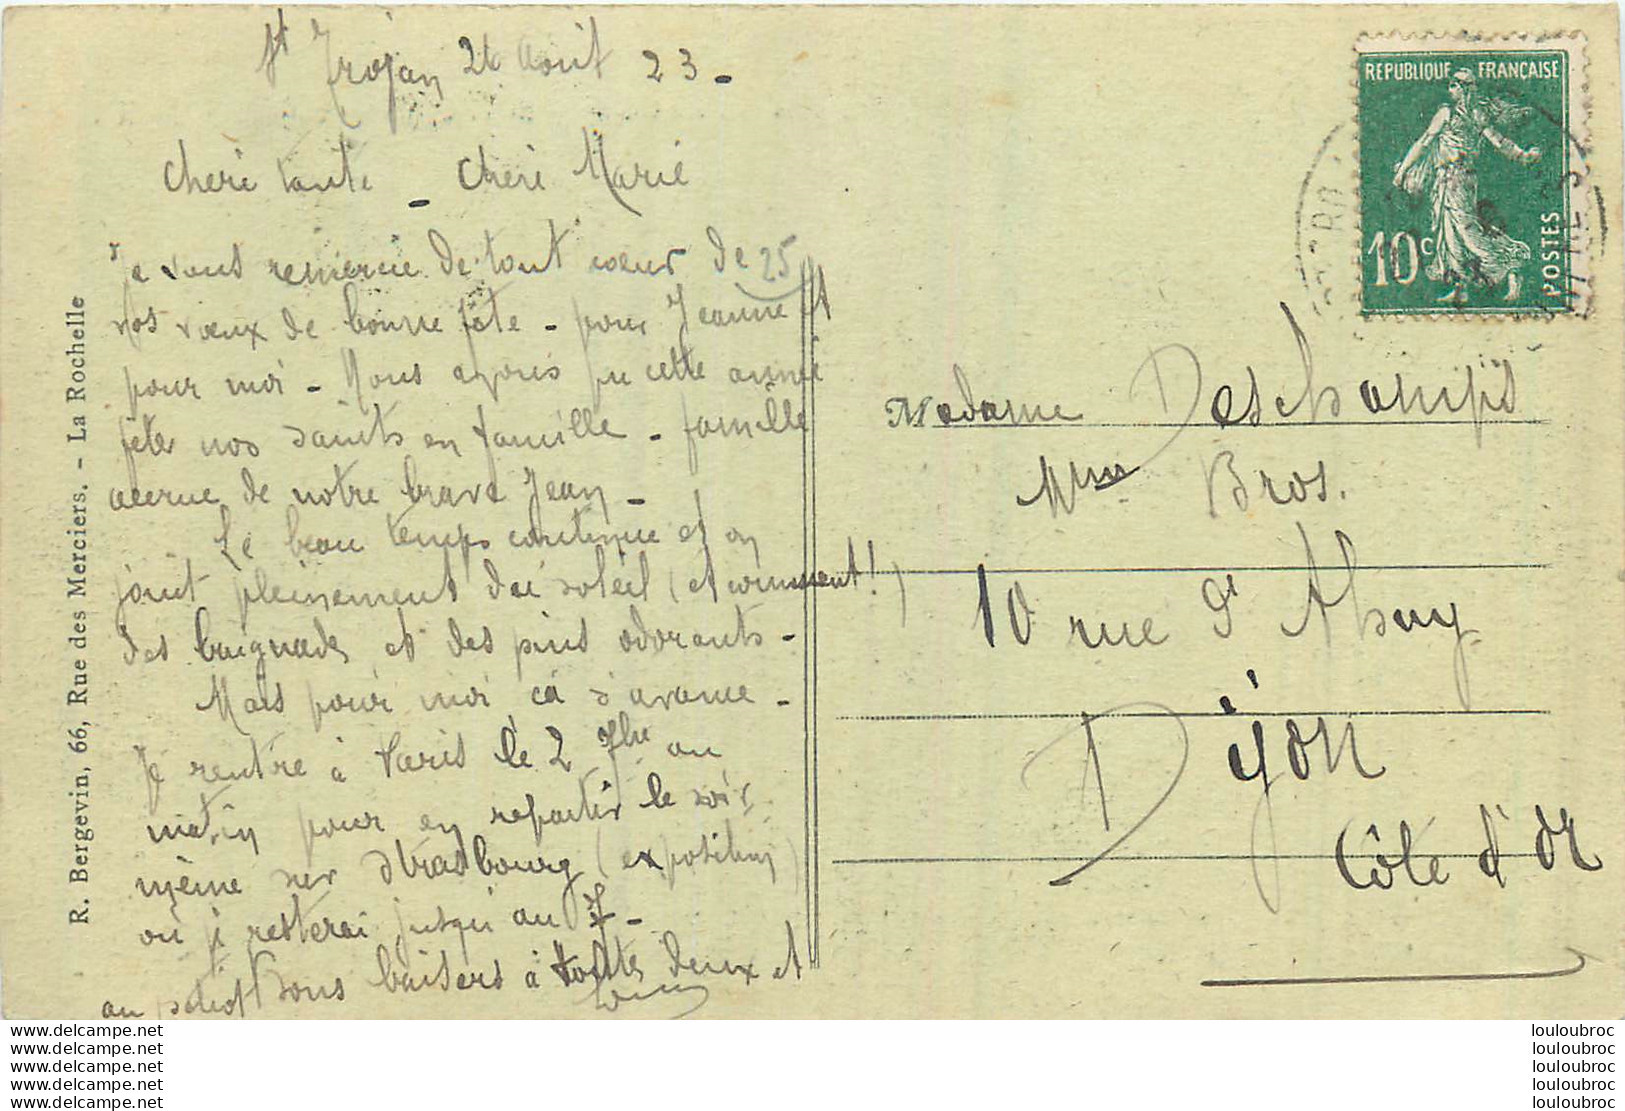 St Trojan 26 Août 23 -
Chère tante - Chère Marie
Je vous remercie de tout coeur de 25
vos voeux de bonne fête - pour Jeanne et
pour moi - Nous avons pu cette année
fêter nos saints en famille - famille
accrue de notre brave Jean -
Le beau temps continue et on
jouit pleinement du soleil (et comment!)
des baignades et des pins odorants -
Mais pour moi ça s'avance -
Je rentre à Paris le 2 7bre au
matin pour en repartir le soir
même sur Strasbourg (exposition)
où je resterai jusqu'au 7 -
bons baisers à toutes deux et
R. Bergevin, 66, Rue des Merciers. - La Rochelle
REPUBLIQUE FRANÇAISE
10c
POSTES
Madame Deschamps
Mme Bros.
10 rue
Dijon
Côte d'Or
louloubroc louloubroc
louloubroc louloubroc
louloubroc louloubroc
louloubroc louloubroc
louloubroc louloubroc